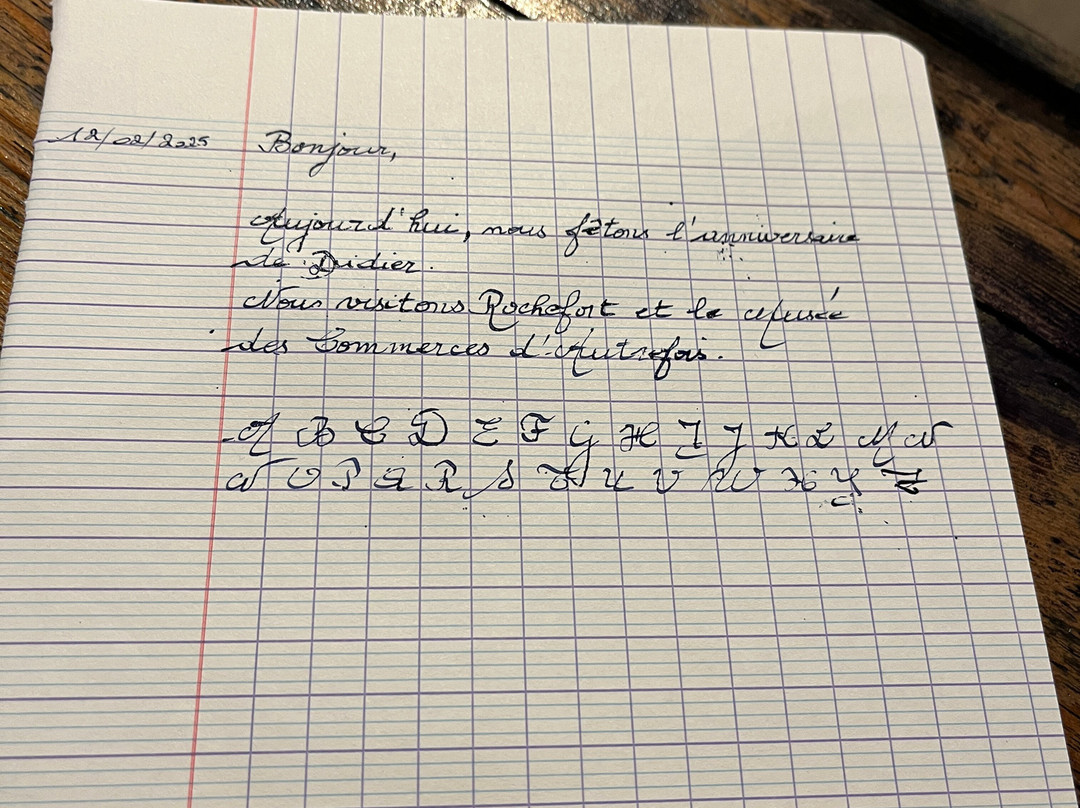 12/02/2025 Bonjour,
Aujourd'hui, nous fêtons l'anniversaire
de Didier.
Nous visitons Rochefort et le Musée
des Commerces d'Autrefois.
A B C D E F G H I J K L M N
N O P Q R S T U V W X Y Z